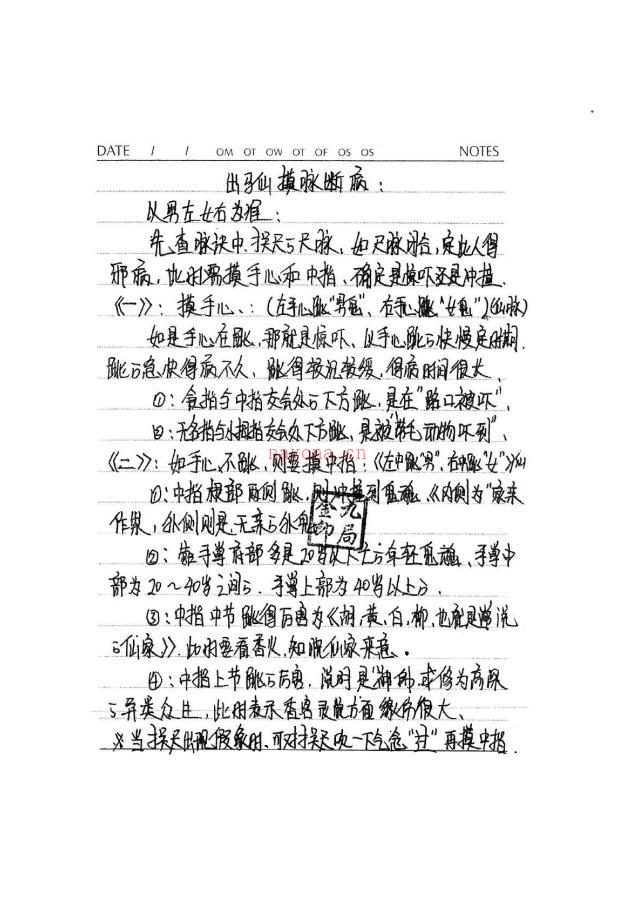 DATE / / OM OT OW OT OF OS OS NOTES
出马仙摸脉断病：
以男左女右为准：
先查脉诀中
尺脉、如尺脉闭合，定此人得
邪病，此时需要摸手心和中指、确定是惊吓还是冲撞.
《一》：摸手心、：（左手心跳"男鬼"、右手心跳"女鬼"）（仙脉）
如是手心在跳，那就是惊吓、以手心跳的快慢定时间.
跳的急快得病不久、跳得较沉较缓，得病时间很久、
①：食指与中指交会处的下方跳，是在"路口被吓"、
②：无名指与小拇指交会处下方跳、是被"带毛动物吓到"、
《二》：如手心不跳、则要摸中指：《左中跳"男"、右中跳"女"》
①：中指根部两侧跳、则冲撞到鬼魂、《内侧为"家亲
作祟，外侧则是无亲的外鬼
②：在手掌
部多是20岁以下的年轻鬼魂、手掌中
部为20～40岁之间的、手掌上部为40岁以上的、
③：中指中节跳得厉害为《胡，黄，白，柳，也就是常说
的仙家》、此时要看香火，知晓仙家来意。
④：中指上节跳的厉害，说明是
或修为高深
的异类众生，此时表示香客灵魂方面
很大、
※当
尺出现假象时、可对
尺吹一下气念
再摸中指.
金九
印局
nayona.cn